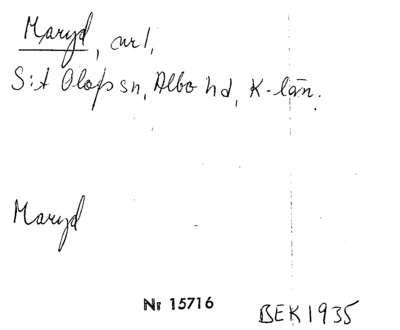 Maryd, curl,
S:t Olofs sn, Albo hd, K-län.
Maryd
Nr 15716
BEK 1935